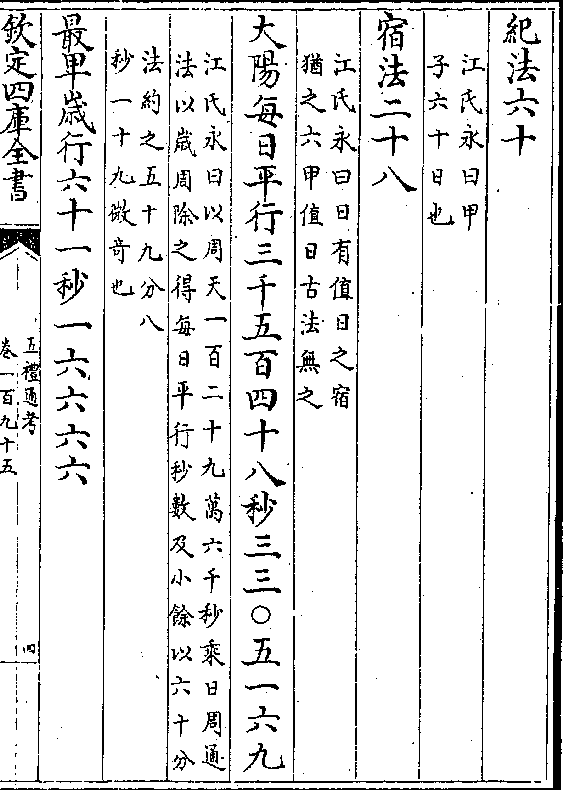 紀法六十
江氏永曰甲
子六十日也
宿法二十八
江氏永曰日有值日之宿
猶之六甲值日古法無之
太陽每日平行三千五百四十八秒三三○五一六九
江氏永曰以周天一百二十九萬六千秒乘日周通
法以歲周除之得每日平行秒數及小餘以六十分
法約之五十九分八
秒一十九微竒也
最卑歲行六十一秒一六六六六
欽定四庫全書
五禮通考
卷一百九十五
四